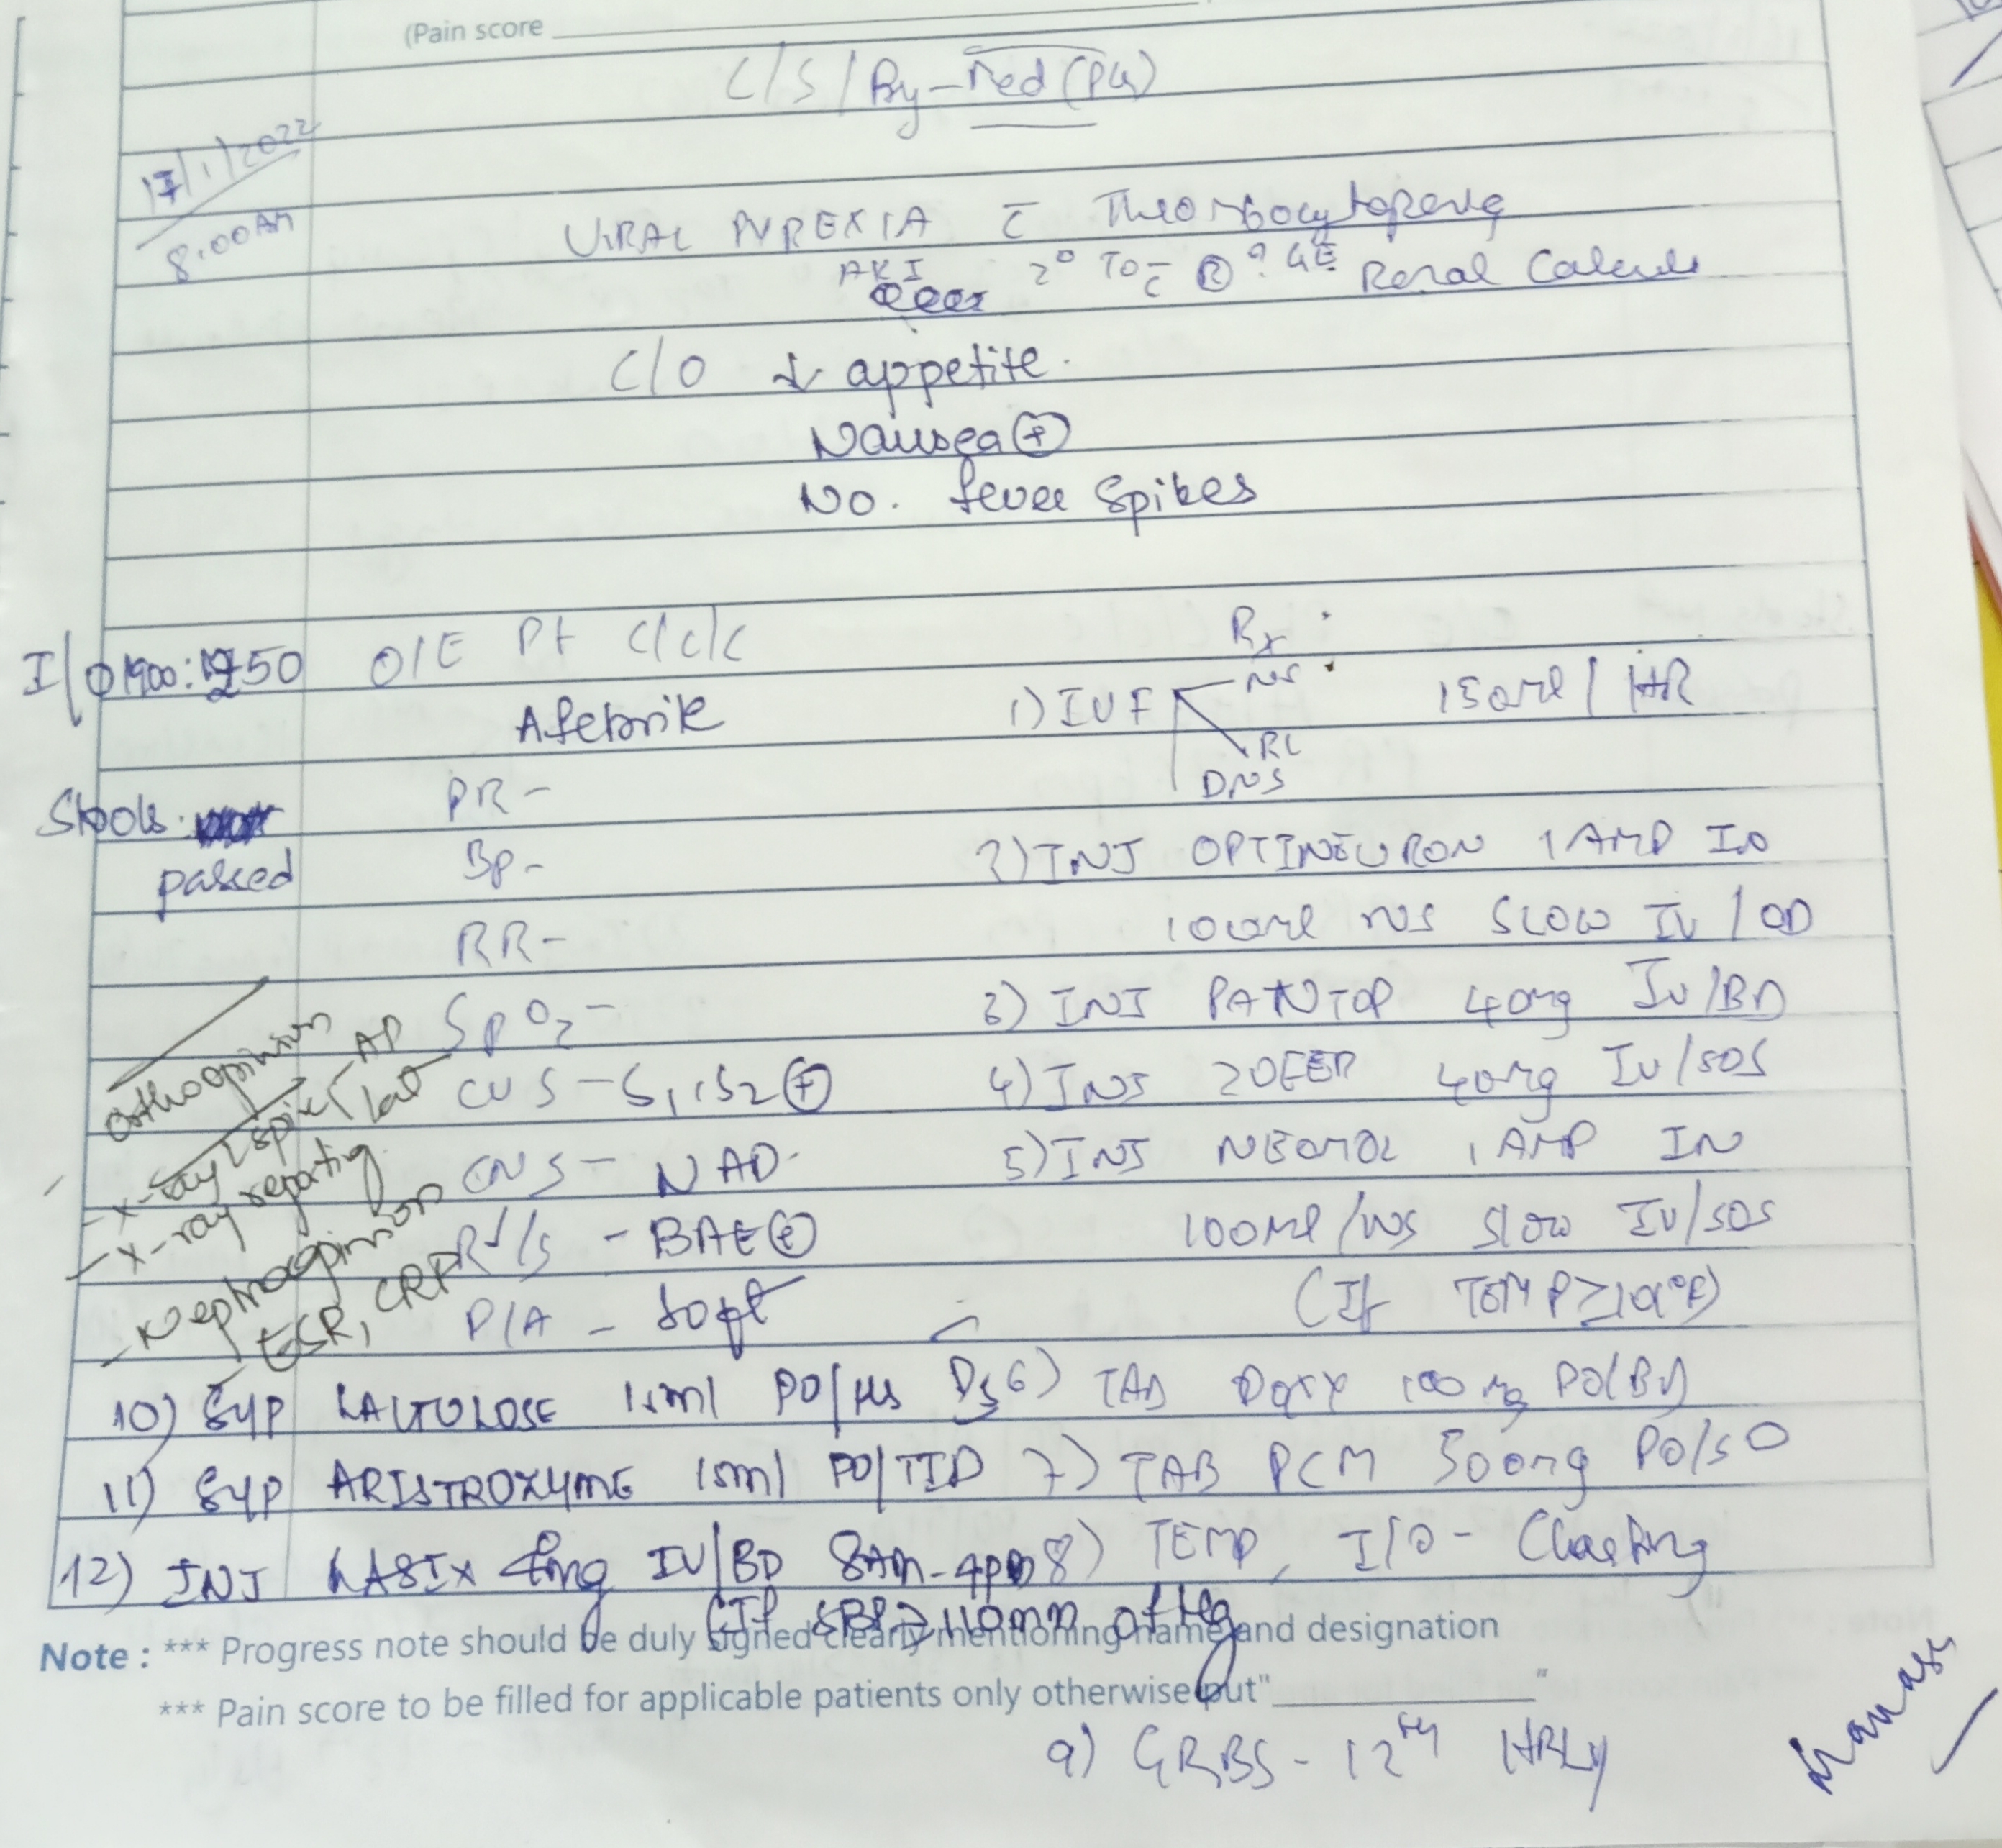 (Pain score
C/S/By-Med (PG)
17/1/2022
8.00AM
VIRAL PYREXIA c̄ Thrombocytopenia
AKI 2° TO ? GE
c̄ Ⓡ Renal Calculi
C/O ↓ appetite.
Nausea ⊕
No. fever spikes
I/O 1900:
O/E Pt C/C/C
Afebrile
Stools passed
PR-
BP-
RR-
SpO2-
CVS - S1,S2 ⊕
CNS - NAD.
R/S - BAE ⊕
P/A - Soft
orthoopinion
- X-ray spine AP Lat
- X-ray reporting
- Nephroopinion
- ESR, CRP
Rx
1) IVF NS 150ml/HR
RL
DNS
2) INJ OPTINEURON 1 AMP IN
100ml NS SLOW IV/OD
3) INJ PANTOP 40mg IV/BD
4) INJ ZOFER 4mg IV/SOS
5) INJ NEOMOL 1 AMP IN
100ml/NS Slow IV/SOS
(If TEMP ≥101°F)
6) TAB Doxy 100mg PO/BD
7) TAB PCM 500mg PO/
8) TEMP, I/O - Charting
10) SYP LACTULOSE 15ml PO/HS
11) SYP ARISTROZYME 15ml PO/TID
12) INJ LASIX IV/BD 8AM-4PM
(If SBP ≥110mm of Hg
Note : *** Progress note should be duly signed clearly mentioning name and designation
*** Pain score to be filled for applicable patients only otherwise put"____"
9) GRBS - 12th HRLY